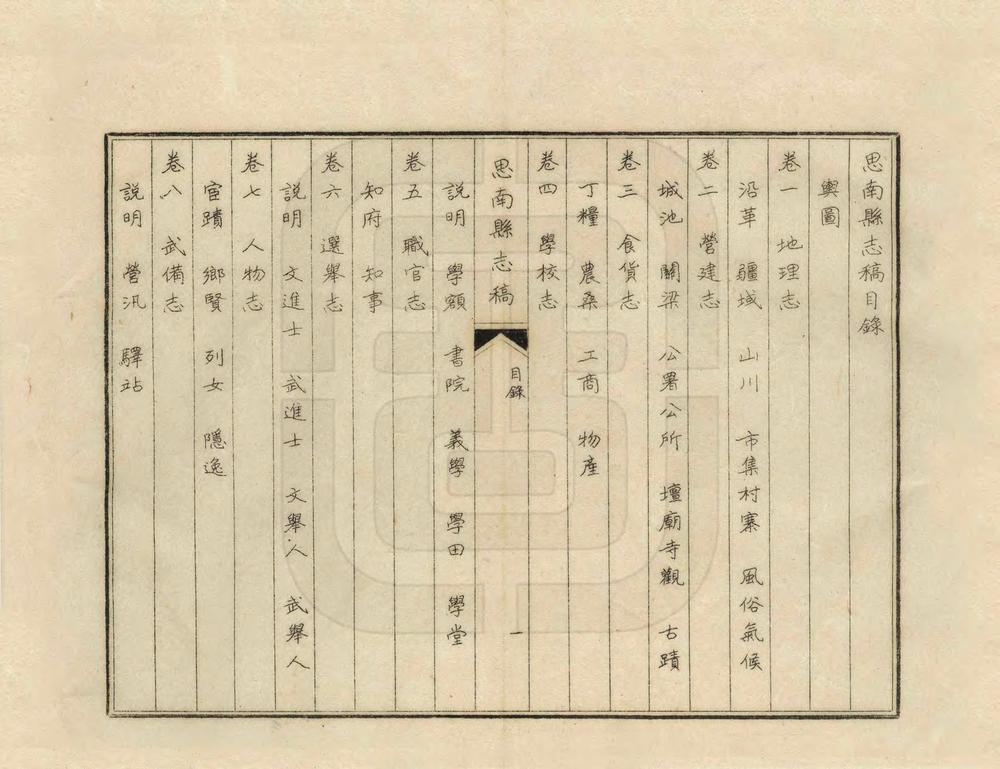 思南縣志稿目錄
輿圖
卷一 地理志
沿革 疆域 山川 市集村寨 風俗氣候
卷二 營建志
城池 關梁 公署公所 壇廟寺觀 古蹟
卷三 食貨志
丁糧 農桑 工商 物產
卷四 學校志
思南縣志稿 目錄 一
說明 學額 書院 義學 學田 學堂
卷五 職官志
知府 知事
卷六 選舉志
說明 文進士 武進士 文舉人 武舉人
卷七 人物志
宦蹟 鄉賢 列女 隱逸
卷八 武備志
說明 營汛 驛站